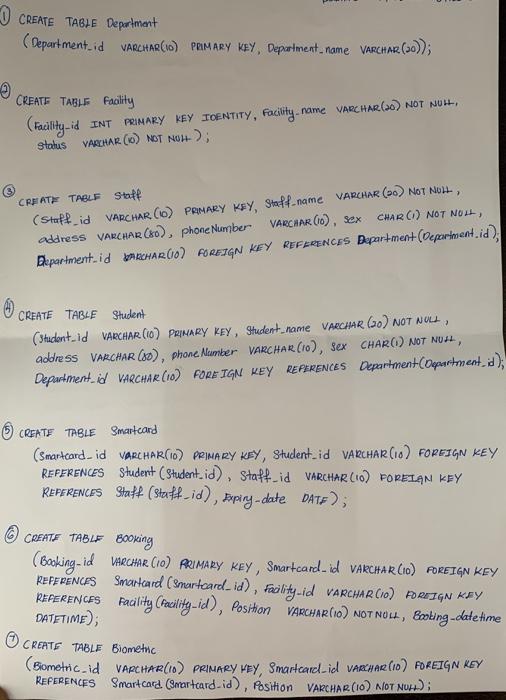 ① CREATE TABLE Department
(Department_id VARCHAR(10) PRIMARY KEY, Department_name VARCHAR(20));
② CREATE TABLE Facility
(Facility_id INT PRIMARY KEY IDENTITY, Facility_name VARCHAR(20) NOT NULL,
status VARCHAR(10) NOT NULL);
③ CREATE TABLE Staff
(Staff_id VARCHAR(10) PRIMARY KEY, Staff_name VARCHAR(20) NOT NULL,
address VARCHAR(80), phoneNumber VARCHAR(10), sex CHAR(1) NOT NULL,
Department_id VARCHAR(10) FOREIGN KEY REFERENCES Department(Department_id);
④ CREATE TABLE Student
(Student_id VARCHAR(10) PRIMARY KEY, Student_name VARCHAR(20) NOT NULL,
address VARCHAR(80), phone Number VARCHAR(10), sex CHAR(1) NOT NULL,
Department_id VARCHAR(10) FOREIGN KEY REFERENCES Department(Department_id);
⑤ CREATE TABLE Smartcard
(Smartcard_id VARCHAR(10) PRIMARY KEY, Student_id VARCHAR(10) FOREIGN KEY
REFERENCES Student(Student_id), Staff_id VARCHAR(10) FOREIGN KEY
REFERENCES Staff(Staff_id), Expiry-date DATE);
⑥ CREATE TABLE Booking
(Booking_id VARCHAR(10) PRIMARY KEY, Smartcard_id VARCHAR(10) FOREIGN KEY
REFERENCES Smartcard(Smartcard_id), Facility_id VARCHAR(10) FOREIGN KEY
REFERENCES Facility(Facility_id), Position VARCHAR(10) NOT NULL, Booking_datetime
DATETIME);
⑦ CREATE TABLE Biometric
(Biometric_id VARCHAR(10) PRIMARY KEY, Smartcard_id VARCHAR(10) FOREIGN KEY
REFERENCES Smartcard(Smartcard_id), Position VARCHAR(10) NOT NULL);